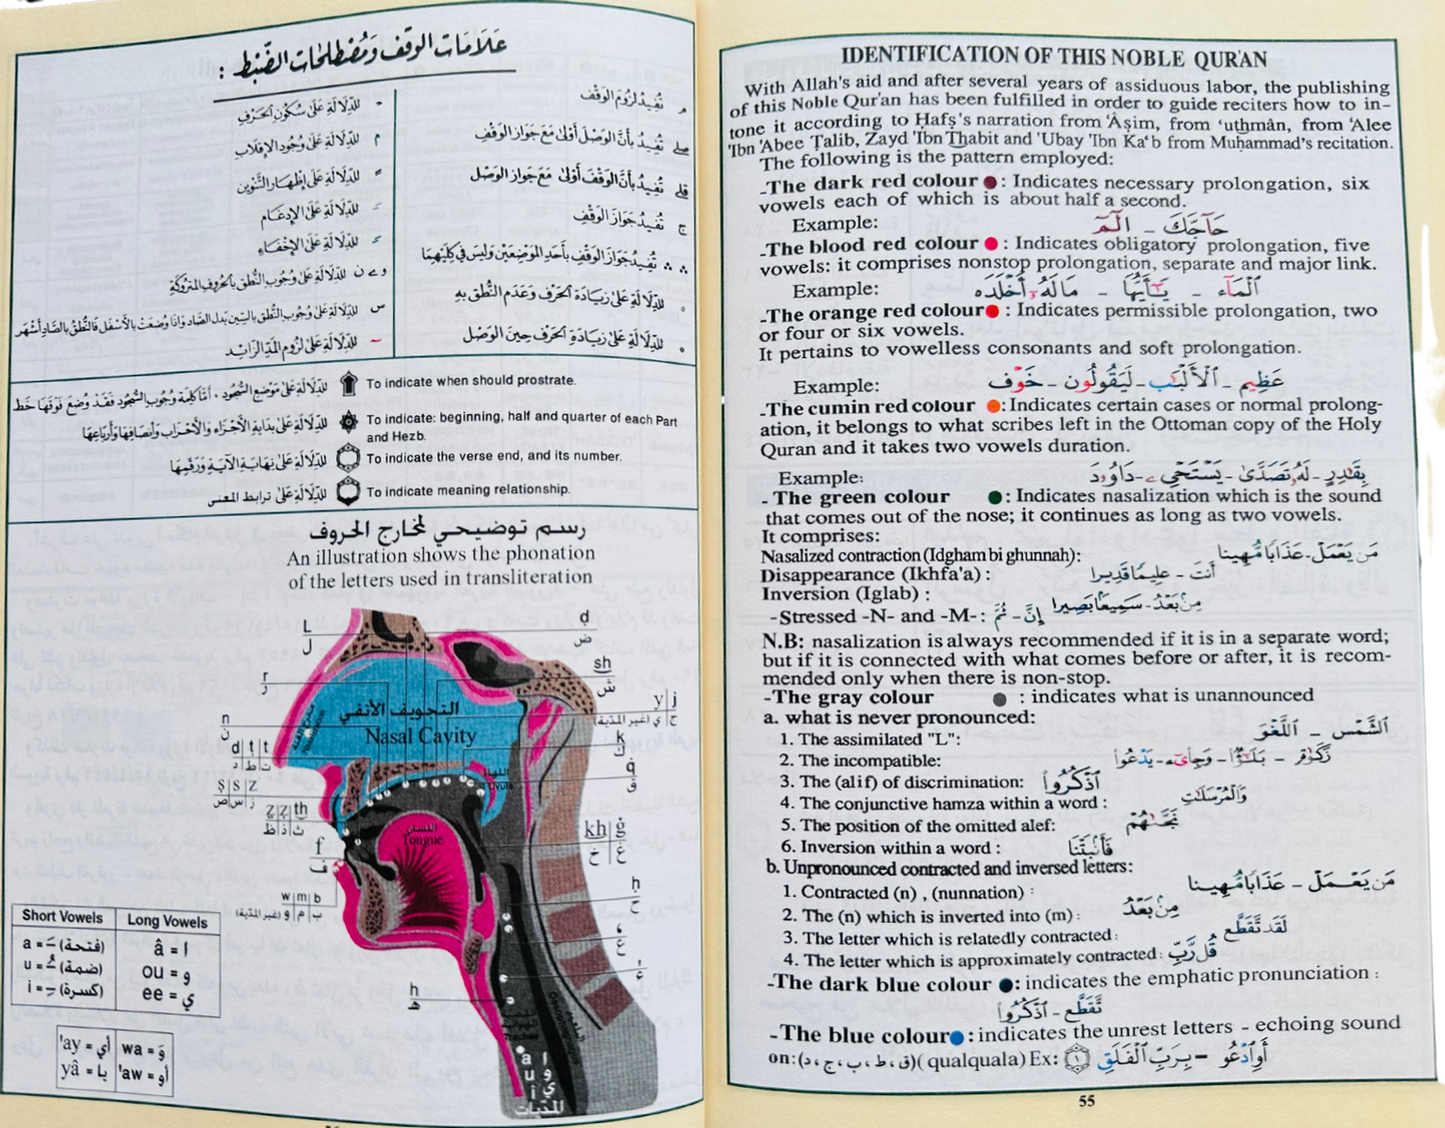 عَلَامَات الوَقْف وَمُصْطَلَحَات الضَّبْط :
مـ تُفِيدُ لُزُومَ الوَقْفِ
صلى تُفِيدُ بأنَّ الوَصْلَ أَوْلَى مَعَ جَوَازِ الوَقْفِ
قلى تُفِيدُ بأنَّ الوَقْفَ أَوْلَى مَعَ جَوَازِ الوَصْلِ
ج تُفِيدُ جَوَازَ الوَقْفِ
∴ ∴ تُفِيدُ جَوَازَ الوَقْفِ بِأَحَدِ المَوْضِعَيْنِ وَلَيْسَ فِي كِلَيْهِمَا
للدِّلَالَةِ عَلَى زِيَادَةِ الحَرْفِ وَعَدَمِ النُّطْقِ بِهِ
للدِّلَالَةِ عَلَى زِيَادَةِ الحَرْفِ حِينَ الوَصْلِ
للدِّلَالَةِ عَلَى سُكُونِ الحَرْفِ
م للدِّلَالَةِ عَلَى وُجُودِ الإِقْلَابِ
للدِّلَالَةِ عَلَى إِظْهَارِ التَّنْوِينِ
للدِّلَالَةِ عَلَى الإِدْغَامِ
للدِّلَالَةِ عَلَى الإِخْفَاءِ
و ے ن للدِّلَالَةِ عَلَى وُجُوبِ النُّطْقِ بِالحُرُوفِ المَتْرُوكَةِ
س للدِّلَالَةِ عَلَى وُجُوبِ النُّطْقِ بِالسِّينِ بَدَلَ الصَّادِ وَإِذَا وُضِعَتْ بِالأَسْفَلِ فَالنُّطْقُ بِالصَّادِ أَشْهَر
~ للدِّلَالَةِ عَلَى لُزُومِ المَدِّ الزَّائِدِ
للدِّلَالَةِ عَلَى مَوْضِعِ السُّجُودِ ، أَمَّا كَلِمَةُ وُجُوبِ السُّجُودِ فَقَدْ وُضِعَ فَوْقَهَا خَط To indicate when should prostrate.
للدِّلَالَةِ عَلَى بِدَايَةِ الأَجْزَاءِ وَالأَحْزَابِ وَأَنْصَافِهَا وَأَرْبَاعِهَا To indicate: beginning, half and quarter of each Part
and Hezb.
للدِّلَالَةِ عَلَى نِهَايَةِ الآيَةِ وَرَقَمِهَا To indicate the verse end, and its number.
للدِّلَالَةِ عَلَى ترابط المعنى To indicate meaning relationship.
رسم توضيحي لمخارج الحروف
An illustration shows the phonation
of the letters used in transliteration
L
ل
ḍ
ض
r
ر
sh
ش
y | j
ي (غير المدّية) | ج
n
ن
التجويف الأنفي
Nasal Cavity
k
ك
d | ṭ | t
د | ط | ت
q
ق
ṣ | s | z
ص | س | ز
اللهاة
Uvula
ẓ | z | th
ظ | ذ | ث
اللسان
Tongue
kh | ġ
خ | غ
f
ف
ḥ
ح
w | m | b
و (غير المدّية) | م | ب
ع
ء
h
هـ
a ا
u و
i ي
المدّيات
Short Vowels | Long Vowels
a = ـَ (فتحة) | â = ا
u = ـُ (ضمة) | ou = و
i = ـِ (كسرة) | ee = ي
'ay = أي | wa = وَ
yâ = يا | 'aw = أو
IDENTIFICATION OF THIS NOBLE QUR'AN
With Allah's aid and after several years of assiduous labor, the publishing
of this Noble Qur'an has been fulfilled in order to guide reciters how to in-
tone it according to Ḥafṣ's narration from 'Âṣim, from 'uthmân, from 'Alee
'Ibn 'Abee Ṭalib, Zayd 'Ibn Thabit and 'Ubay 'Ibn Ka'b from Muḥammad's recitation.
The following is the pattern employed:
-The dark red colour ●: Indicates necessary prolongation, six
vowels each of which is about half a second.
Example: حَآجَّكَ - الٓمٓ
-The blood red colour ● : Indicates obligatory prolongation, five
vowels: it comprises nonstop prolongation, separate and major link.
Example: ٱلْمَآء - يَٰٓأَيُّهَا - مَالَهُۥٓ أَخْلَدَهُ
-The orange red colour●: Indicates permissible prolongation, two
or four or six vowels.
It pertains to vowelless consonants and soft prolongation.
Example: عَظِيم - ٱلْأَلْبَٰب - لَيَقُولُون - خَوْف
-The cumin red colour ●: Indicates certain cases or normal prolong-
ation, it belongs to what scribes left in the Ottoman copy of the Holy
Quran and it takes two vowels duration.
Example: بِقَٰدِرٍ - لَهُۥ تَصَدَّىٰ - يَسْتَحْىِۦ - دَاوُۥدَ
- The green colour ●: Indicates nasalization which is the sound
that comes out of the nose; it continues as long as two vowels.
It comprises:
Nasalized contraction (Idgham bi ghunnah): مَن يَعْمَلْ - عَذَابًا مُّهِينا
Disappearance (Ikhfa'a) : أَنتَ - عَلِيمًا قَدِيرا
Inversion (Iglab) : مِنۢ بَعْدُ - سَمِيعًۢا بَصِيرا
-Stressed -N- and -M- : إِنَّ - ثُمَّ
N.B: nasalization is always recommended if it is in a separate word;
but if it is connected with what comes before or after, it is recom-
mended only when there is non-stop.
-The gray colour ● : indicates what is unannounced
a. what is never pronounced:
1. The assimilated "L": ٱلشَّمْس - ٱللَّغْو
2. The incompatible: زَكَوٰة - بَلَٰٓؤٌا - وَجِا۟ىٓءَ - يَدْعُوا
3. The (alif) of discrimination: ٱذْكُرُوا
4. The conjunctive hamza within a word : وَٱلْمُرْسَلَٰتِ
5. The position of the omitted alef: نَجَّىٰهُمْ
6. Inversion within a word : فَأَنۢبَتْنَا
b. Unpronounced contracted and inversed letters:
1. Contracted (n) , (nunnation) : مَن يَعْمَلْ - عَذَابًا مُّهِينا
2. The (n) which is inverted into (m) : مِنۢ بَعْدُ
3. The letter which is relatedly contracted: لَقَد تَّقَطَّعَ
4. The letter which is approximately contracted : قُل رَّبِّ
-The dark blue colour ●: indicates the emphatic pronunciation :
تَّقَطَّعَ - ٱذْكُرُوا
-The blue colour●: indicates the unrest letters - echoing sound
on: (ق، ط، ب، ج، د) ( qualquala) Ex: أَوِ ٱدْعُو - بِرَبِّ ٱلْفَلَقِ
55